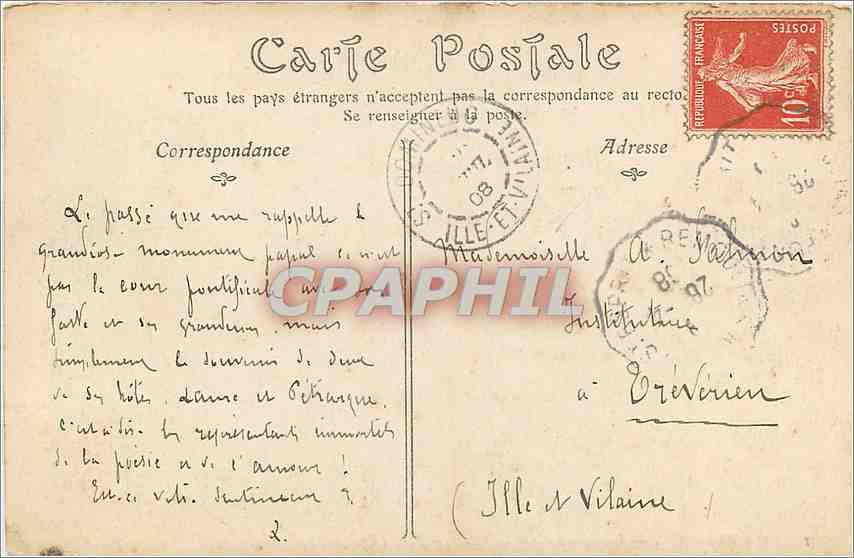 Carte Postale
Tous les pays étrangers n'acceptent pas la correspondance au recto.
Se renseigner à la poste.
Correspondance
Adresse
REPUBLIQUE FRANÇAISE
POSTES
10c
ILLE-ET-VILAINE
08
Le passé que me rappelle le
grandiose monument papal ce n'est
pas la cour pontificale avec son
faste et ses grandeurs, mais
simplement le souvenir de deux
de ses hôtes, Laure et Pétrarque,
c'est à dire les représentants immortels
de la poésie et de l'amour !
Est-ce votre sentiment ?
Mademoiselle A. Salmon
Institutrice
à Trévérien
(Ille et Vilaine)
CPAPHIL